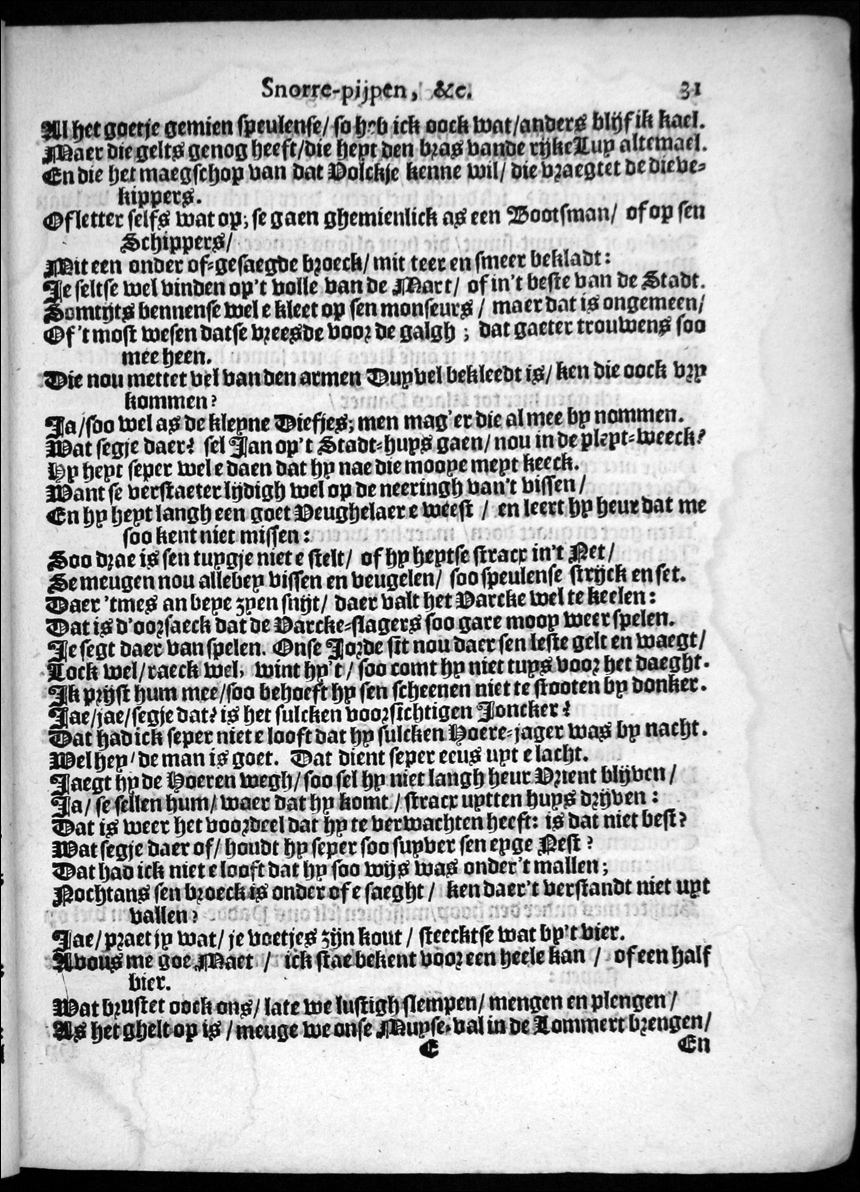 Snorre-pijpen, &c. 31
Al het goetje gemien speulense/ so heb ick oock wat/anders blijf ik kael.
Maer die gelts genog heeft/die heyt den bras vande rijke Luy altemael.
En die het maegschop van dat Volckje kenne wil/ die vraegtet de dieve-
kippers.
Of letter selfs wat op; se gaen ghemienlick as een Bootsman/ of op sen
Schippers/
Mit een onder of-gesaegde broeck/ mit teer en smeer bekladt:
Je seltse wel vinden op't volle van de Mart/ of in't beste van de Stadt.
Somtijts bennense wel e kleet op sen monseurs / maer dat is ongemeen/
Of 't most wesen datse vreesde voor de galgh ; dat gaeter trouwens soo
mee heen.
Die nou mettet vel van den armen Duyvel bekleedt is/ ken die oock vry
kommen?
Ja/soo wel as de kleyne Diefjes; men mag'er die al mee by nommen.
Wat segje daer? sel Jan op't Stadt-huys gaen/ nou in de pleyt-weeck?
Hy heyt seper wel e daen dat hy nae die mooye meyt keeck.
Want se verstaeter lijdigh wel op de neeringh van't vissen /
En hy heyt langh een goet Veughelaer e weest / en leert hy heur dat me
soo kent niet missen:
Soo drae is sen tuygje niet e stelt/ of hy heytse stracx in't Net/
Se meugen nou allebey vissen en veugelen/ soo speulense strijck en set.
Daer 'tmes an beye zyen snijt/ daer valt het Varcke wel te keelen:
Dat is d'oorsaeck dat de Varcke-slagers soo gare mooy weer spelen.
Je segt daer van spelen. Onse Jorde sit nou daer sen leste gelt en waegt/
Lock wel/raeck wel, wint hy't / soo comt hy niet tuys voor het daeght.
Ik prijst hum mee/soo behoeft hy sen scheenen niet te stooten by donker.
Jae/jae/segje dat? is het sulcken voorsichtigen Joncker?
Dat had ick seper niet e looft dat hy sulcken Hoere-jager was by nacht.
Wel hey/ de man is goet. Dat dient seper eeus uyt e lacht.
Jaegt hy de Hoeren wegh/ soo sel hy niet langh heur Vrient blijven/
Ja/ se sellen hum/ waer dat hy komt / stracx uytten huys drijven:
Dat is weer het voordeel dat hy te verwachten heeft: is dat niet best?
Wat segje daer of/ houdt hy seper soo suyver sen eyge Nest?
Dat had ick niet e looft dat hy soo wijs was onder't mallen;
Nochtans sen broeck is onder of e saeght / ken daer't verstandt niet uyt
vallen?
Jae/ praet jy wat/ je voetjes zijn kout / steecktse wat by't vier.
Avous me goe Maet / ick stae bekent voor een heele kan / of een half
vier.
Wat brustet oock ons/ late we lustigh slempen/ mengen en plengen/
As het ghelt op is / meuge we onse Muyse-val in de Lommert brengen/
E En